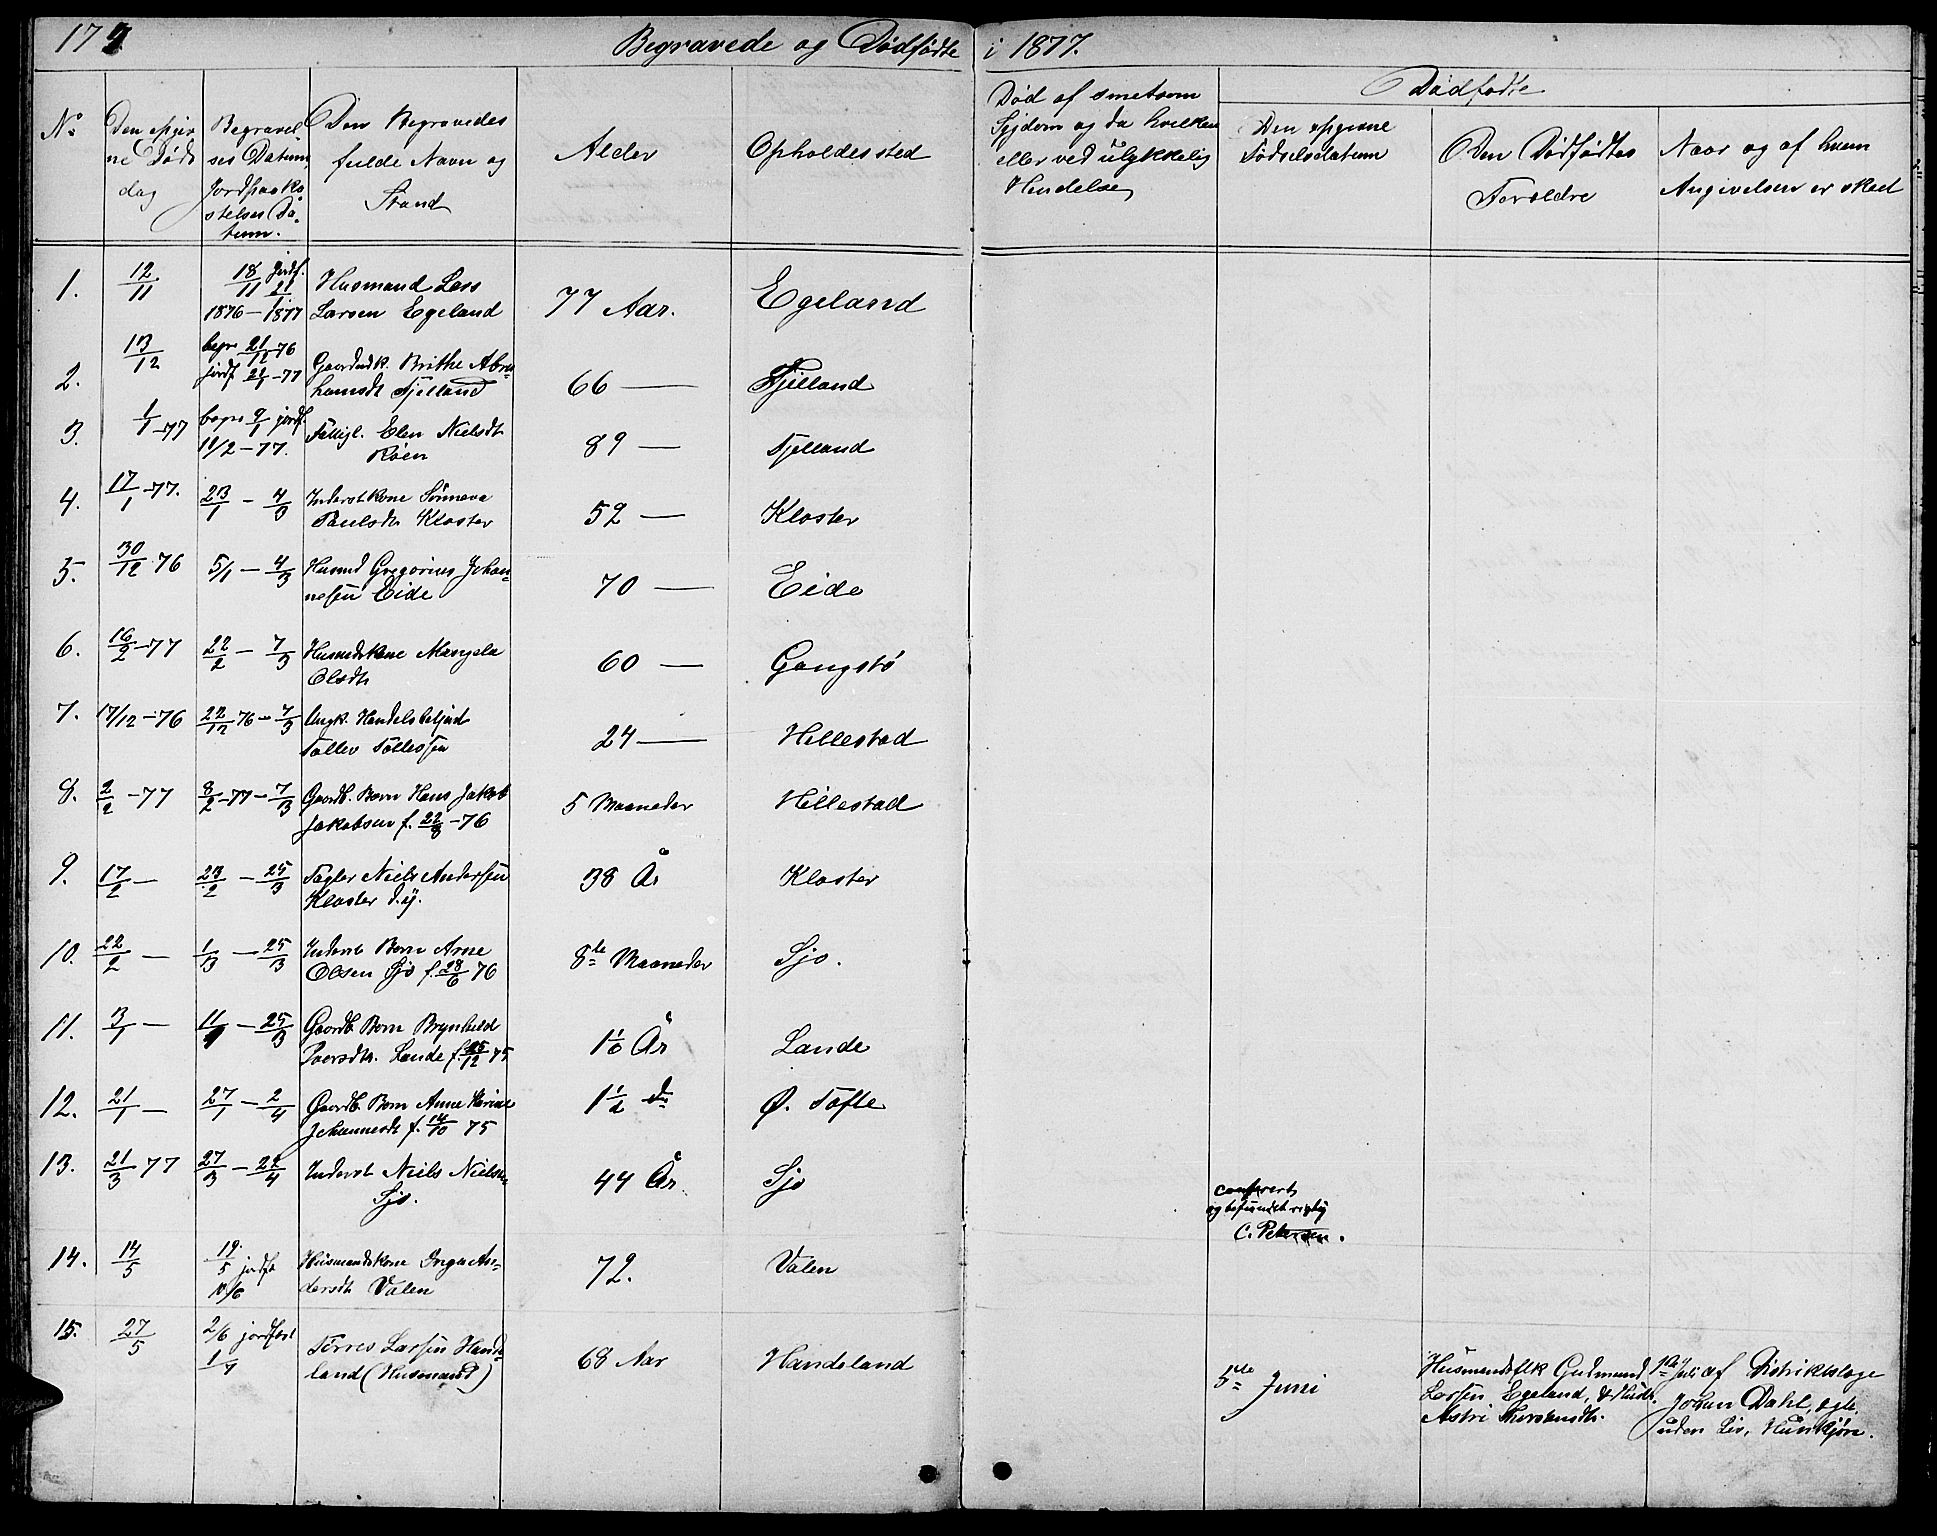 179 Begravede og Dødfødte i 1877.
No
Den opgiv
ne Døds
dag
Begravel
ses Datum,
Jordpaaka
stelses Da-
tum.
Den Begravedes
fulde Navn og
Stand
Alder
Opholdssted
Død af smetsom
Sygdom og da hvilken
eller ved ulykkelig
Hendelse
Dødfødte
Den opgivne
Fødselsdatum
Den Dødfødtes
Forældre
Naar og af hvem
Angivelsen er skeet
1. 12/11 18/11 jordf. 21/1 Husmand Lars 77 Aar. Egeland
1876 — 1877 Larsen Egeland
2. 13/12 begr 21/12-76 Gaardmdk. Brithe Abra- 66 — Fjelland
jordf 21/1-77 hamsdt Fjelland
3. 1/1-77 begr 9/1 jordf. Fattigl. Elen Nielsdt 89 — Fjelland
11/2-77. Røen
4. 17/1-77. 23/1 — 4/3 Inderstkone Sønneva 52 — Kloster
Paulsdtr Kloster
5. 30/12 76 5/1 — 4/3 Husmd Gregorius Johan- 70 — Eide
nesen Eide
6. 16/2-77 22/2 — 7/3 Husmdskone Mangela 60 — Gangstø
Olsdtr
7. 17/12-76 22/12 76 — 7/3 Ungk. Handelsbetjent 24 — Hellestad
Tollev Tollefsen
8. 2/2-77 8/2-77 — 7/3 Gaardb. Barn Hans Jakob 5 Maaneder Hellestad
Jakobsen f. 22/8-76
9. 17/2 — 23/2 — 25/3 Fogler Niels Andersen 38 År Kloster
Kloster d.y.
10. 22/2 — 1/3 — 25/3 Inderst Barn Arne 8de Maaneder Sjo.
Olsen Sjo f. 28/6 76
11. 3/1 — 11/1 — 25/3 Gaardb. Barn Brynhild 1 1/0 År Lande
Iversdtr. Lande f. 25/12 75
12. 21/1 — 27/1 — 2/4 Gaardb. Barn Anne Karine 1 1/2 do Ø. Tofte
Johannesdt f. 14/10 75
13. 21/3 77 27/3 — 22/4 Inderst Niels Nielsen 44 År. Sjo
Sjo.
confereret
og befundet rigtig
C. Petersen.
14. 14/5 19/5 jordfst Husmandskone Inga An- 72. Valen
10/6 dersdt Valen
15. 27/5 2/6 jordfæst Tørres Larsen Hande- 68 Aar Handeland
1/7 land (Husmand)
5te Juni
Husmandsflk Gudmund
Larsen Egeland, & Hustr.
Astri Thorstensdtr.
1ste Juli af Distriktslæge
Johan Dahl, egte.
uden Liv, Hunkjøn.